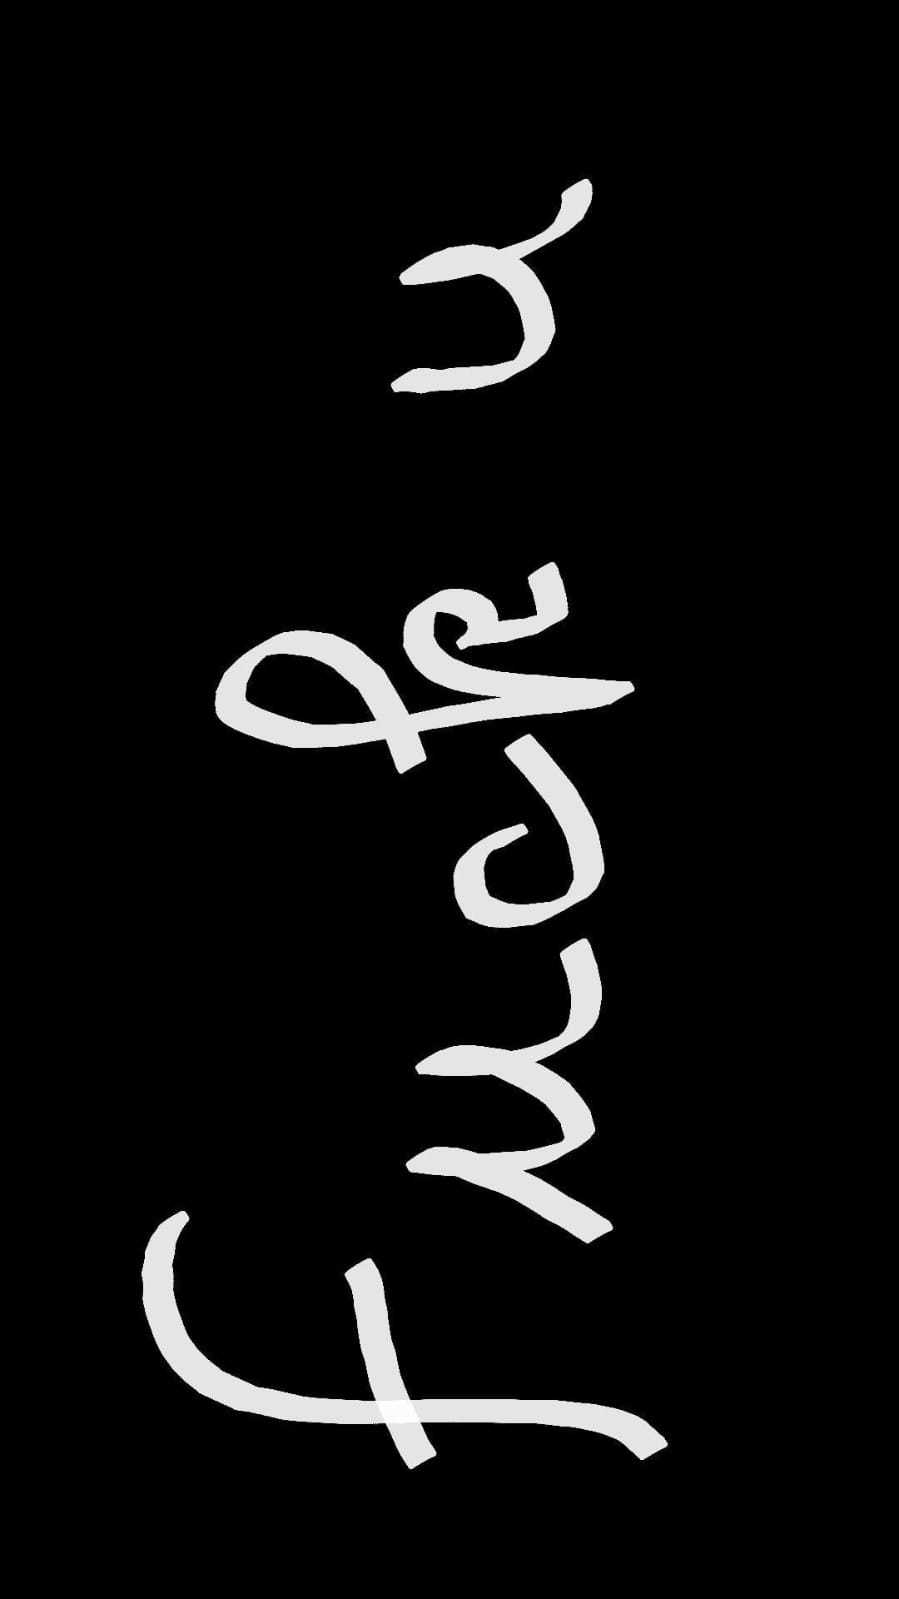 fuck u